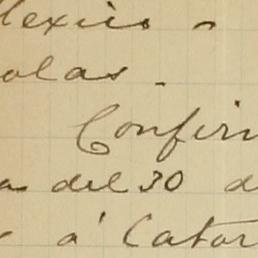 Mexico -
olas.
Confir
a del 30 d
á Cator